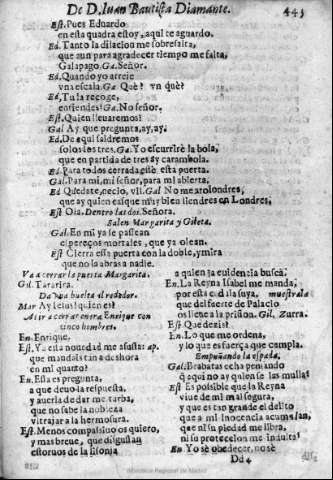 De D. Iuan Bautista Diamante. 445
Est. Pues Eduardo
en esta quadra estoy, aqui te aguardo.
Ed. Tanto la dilacion me sobresalta,
que aun para agradecer tiempo me falta,
Galapago. Ga. Señor.
Ed. Quando yo arroje
vna escala. Ga. Què? vn què?
Ed. Tu la recoge,
entiendes? Ga. No señor.
Est. Quien lleuaremos?
Gal. Ay que pregunta, ay, ay.
Ed. De aqui saldremos
solos los tres. Ga. Yo escurrirè la bola,
que en partida de tres ay carambola.
Ed. Para todos cerrada està esta puerta.
Gal. Para mi, mi señor, para mi abierta.
Ed. Quedate, necio, Gal. No me arolondres,
que ay quien case muy bien liendres en Londres,
Est. Ola. Dentro las dos. Señora.
Salen Margarita y Gileta.
Gal. En mi ya se passean
cipreços mortales, que ya olean.
Est. Cierra essa puerta con la doble, y mira
que no la abras a nadie.
Va a cerrar la puerta Margarita.
Gil. Tararira.
Da vna buelta al rededor.
Mar. Ay Iesus! quien es?
Al ir a cerrar entra Enrique con
cinco hombres.
En. Enrique.
Est. Ya esta nouedad me assusta: ap.
que mandais tan a deshora
en mi quarto?
En. Essa es pregunta,
a que deuo la respuesta,
y auerla de dar me turba,
que no sabe la nobleza
vitrajar a la hermosura.
Est. Menos compassiuo os quiero,
y mas breue, que disgustan
estoruos de la lisonja
a quien la euidencia busca.
En. La Reyna Isabel me manda,
por esta cedula suya, muestrala
que del fuerte de Palacio
os lleue a la prision. Gil. Zurra.
Est. Què dezis?
En. Lo que me ordena,
y lo que es fuerça que cumpla.
Empuñando la espada.
Gal. Brabatas echa pensando
q aqui no ay quien se las mulla?
Est. Es possible que la Reyna
viue de mi mal segura,
y que es tan grande el delito
que a mi inocencia acumulan,
que ni su piedad me libra,
ni su proteccion me indulta?
En. Yo sè obedecer, no sè
Dd 4
Biblioteca Regional de Madrid